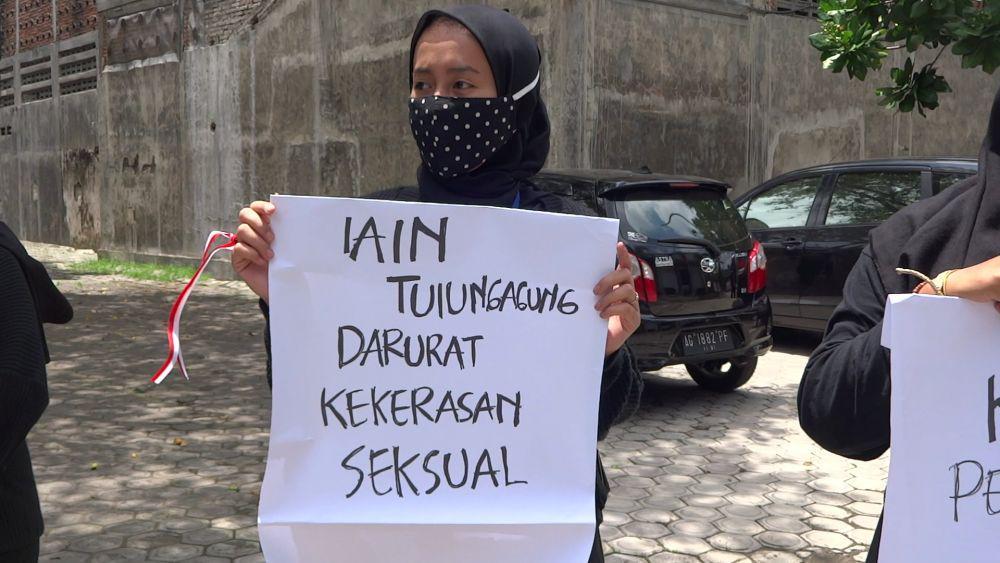 IAIN
TUlUNGAGUNG
DARURAT
KEKERASAN
SEKSUAL
AG 1882 PF
PE